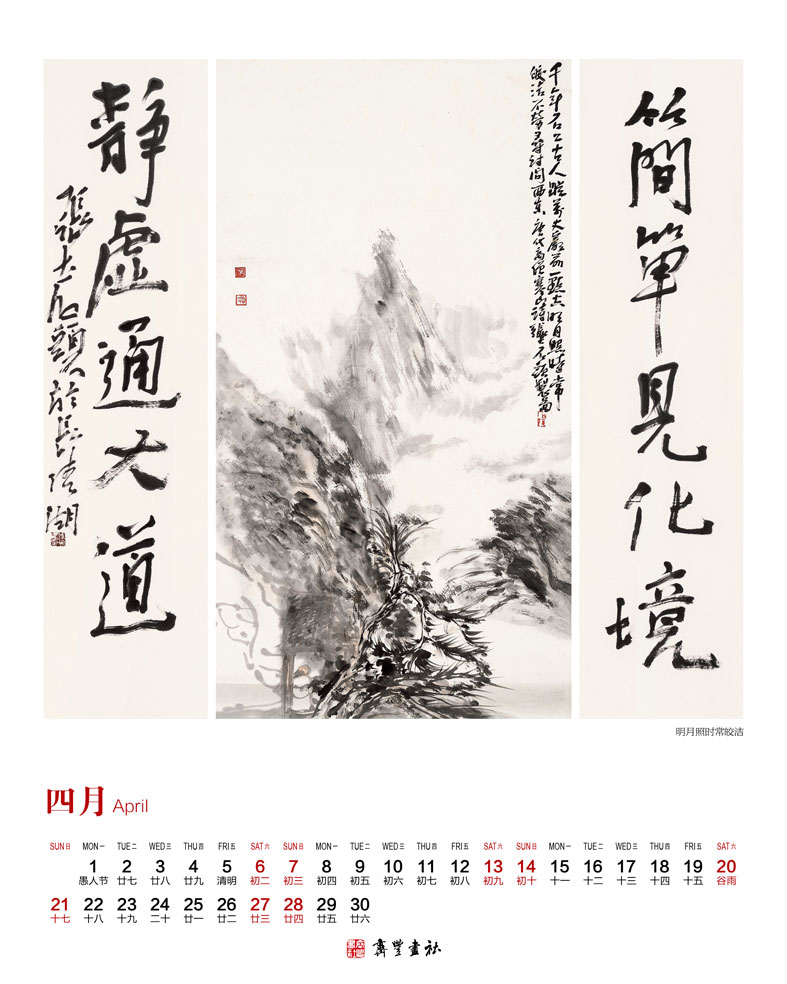 簡單見化境
千年石上古人蹤萬丈巖前一點空明月照時常
皎潔不勞尋討問西東 唐代高僧寒山詩
靜虛通大道
張大石頭於長清湖
明月照时常皎洁
四月 April
SUN日 MON一 TUE二 WED三 THU四 FRI五 SAT六 SUN日 MON一 TUE二 WED三 THU四 FRI五 SAT六 SUN日 MON一 TUE二 WED三 THU四 FRI五 SAT六
1 2 3 4 5 6 7 8 9 10 11 12 13 14 15 16 17 18 19 20
愚人节 廿七 廿八 廿九 清明 初二 初三 初四 初五 初六 初七 初八 初九 初十 十一 十二 十三 十四 十五 谷雨
21 22 23 24 25 26 27 28 29 30
十七 十八 十九 二十 廿一 廿二 廿三 廿四 廿五 廿六
畫社